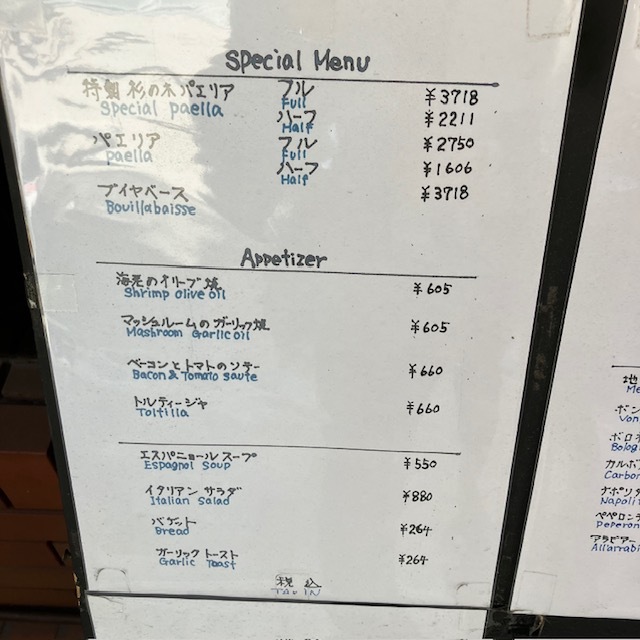 Special Menu
特製 杉の木パエリア フル ¥3718
Special paella Full
ハーフ ¥2211
Half
パエリア フル ¥2750
paella Full
ハーフ ¥1606
Half
ブイヤベース ¥3718
Bouillabaisse
Appetizer
海老のオリーブ焼 ¥605
Shrimp olive oil
マッシュルームのガーリック焼 ¥605
Mashroom Garlic oil
ベーコンとトマトのソテー ¥660
Bacon & Tomato saute
トルティージャ ¥660
Toltilla
エスパニョールスープ ¥550
Espagnol soup
イタリアンサラダ ¥880
Italian Salad
バケット ¥264
Bread
ガーリックトースト ¥264
Garlic Toast
税込
Tax IN
地
Me
ボン
Von
ボロネ
Bolog
カルボ
Carbon
ナポリタ
Napolit
ペペロンチ
Peperon
アラビアー
Allarrabi